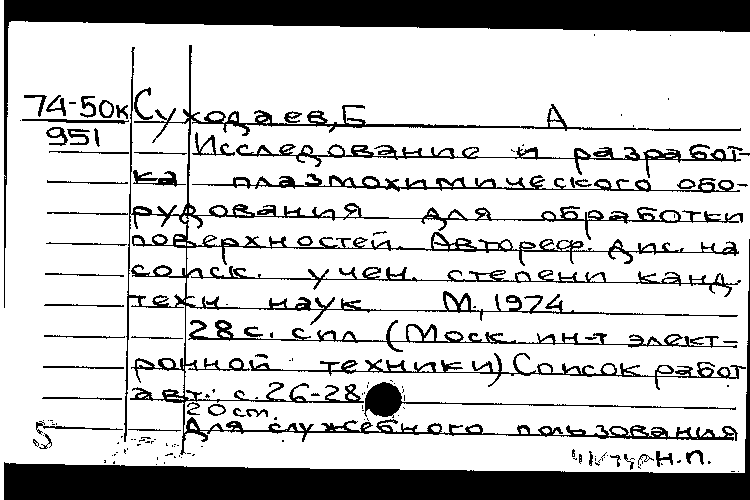 74-50к Суходаев, Б А
951
Исследование и разработ-
ка плазмохимического обо-
рудования для обработки
поверхностей. Автореф. дис. на
соиск. учен. степени канд.
техн. наук. М., 1974.
28 с. с ил. (Моск. ин-т элект-
ронной техники). Список работ
авт.: с. 26-28
20 ст.
Для служебного пользования
5
Н.П.